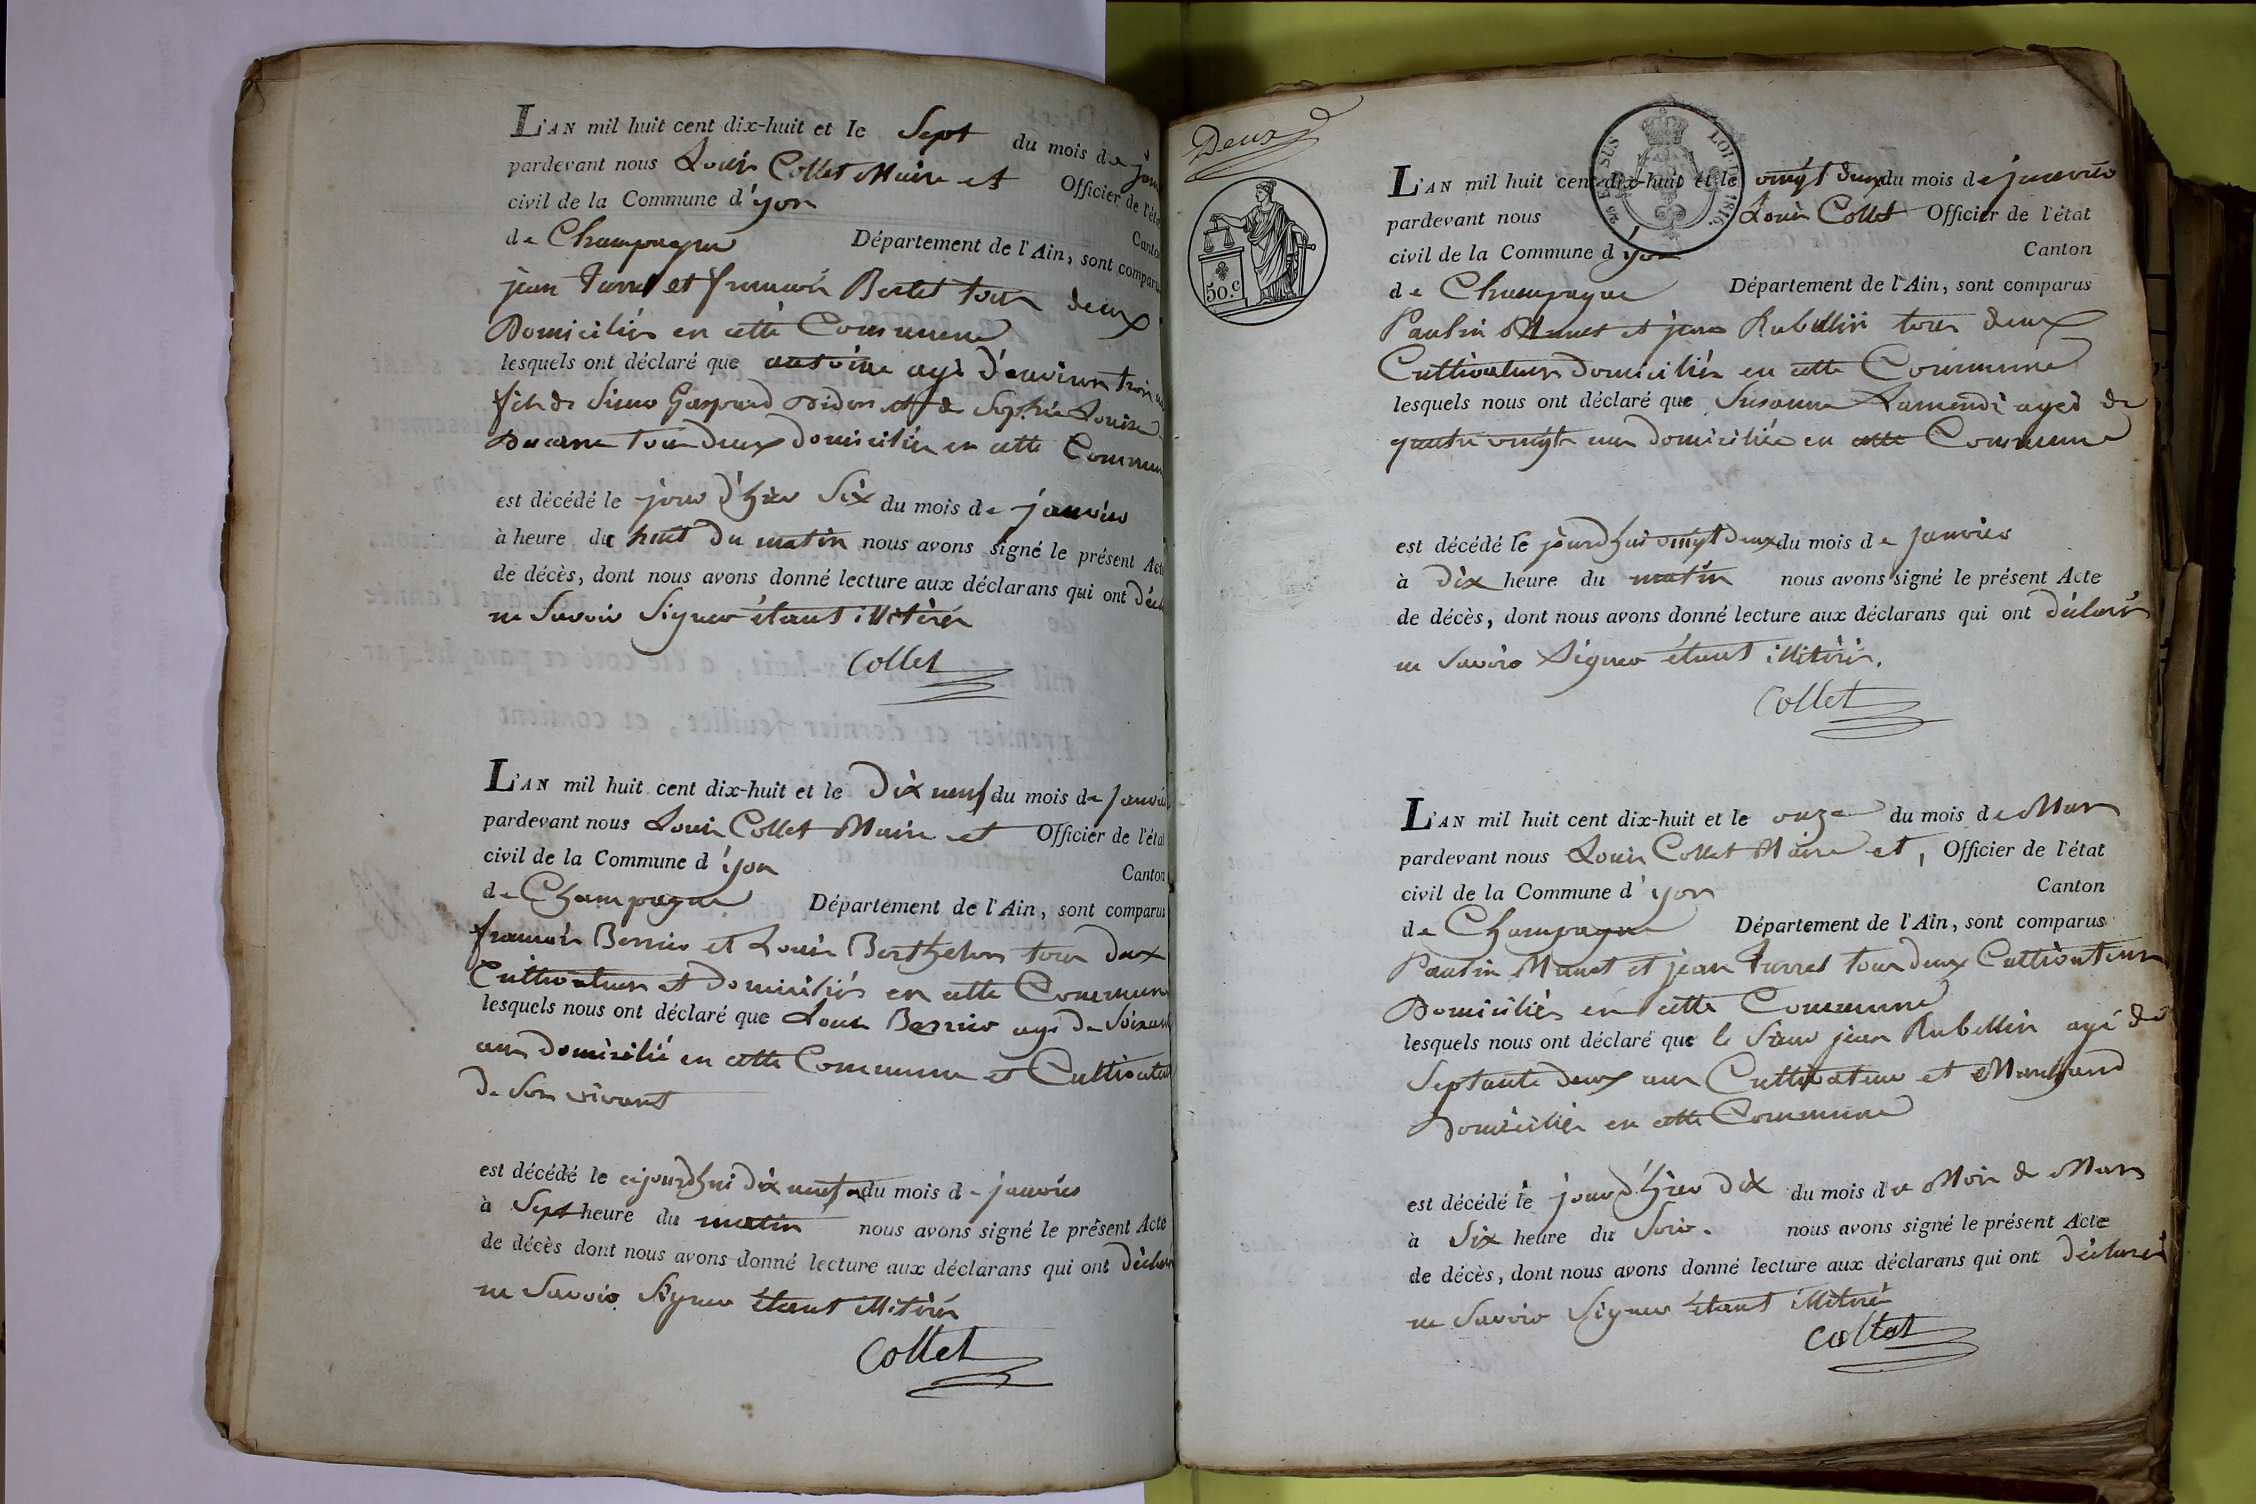 L'AN mil huit cent dix-huit et le Sept du mois de
pardevant nous Louis Collet Maire et Officier de l'état
civil de la Commune d'yon Canton
de Champagne Département de l'Ain, sont comparus
jean et francois Bertet tous deux
Domiciliés en cette Commune
lesquels ont déclaré que antoine agé d'environ trois
fils de Sieur Gaspard Didon et de Sophie Louise
Ducarre tous deux domiciliés en cette Commune
est décédé le jour d'hier Six du mois de janvier
à heure du huit du matin nous avons signé le présent Acte
de décès, dont nous avons donné lecture aux déclarans qui ont
ne Savoir Signer étant illiterés
Collet
L'AN mil huit cent dix-huit et le Dix neuf du mois de Janvier
pardevant nous Louis Collet Maire et Officier de l'état
civil de la Commune d'yon Canton
de Champagne Département de l'Ain, sont comparus
francois Bernier et Louis Berthelon tous deux
Cultivateurs et Domiciliés en cette Commune
lesquels nous ont déclaré que Louis Bernier agé de Soixante
ans domicilié en cette Commune et Cultivateur
de Son vivant
est décédé le cejourdhui dix neuf du mois de janvier
à Sept heure du matin nous avons signé le présent Acte
de décès dont nous avons donné lecture aux déclarans qui ont déclaré
ne Savoir Signer étant illiterés
Collet
Deux
50.c
LOI DE 1816.
L'AN mil huit cent dix-huit et le vingt deux du mois de janvier
pardevant nous Louis Collet Officier de l'état
civil de la Commune d'yon Canton
de Champagne Département de l'Ain, sont comparus
Paulin Manet et jean Rubellin tous deux
Cultivateurs domiciliés en cette Commune
lesquels nous ont déclaré que Susanne agée de
quatre vingt ans domiciliée en cette Commune
est décédé le jourdhui vingt deux du mois de janvier
à dix heure du matin nous avons signé le présent Acte
de décès, dont nous avons donné lecture aux déclarans qui ont déclaré
ne Savoir Signer étant illiterés.
Collet
L'AN mil huit cent dix-huit et le onze du mois de Mars
pardevant nous Louis Collet Maire et, Officier de l'état
civil de la Commune d'yon Canton
de Champagne Département de l'Ain, sont comparus
Paulin Manet et jean tous deux Cultivateurs
Domiciliés en cette Commune
lesquels nous ont déclaré que le Sieur jean Rubellin agé de
Septante deux ans Cultivateur et Marchand
Domicilié en cette Commune
est décédé le jour d'hier dix du mois de Mois de Mars
à Six heure du Soir. nous avons signé le présent Acte
de décès, dont nous avons donné lecture aux déclarans qui ont déclaré
ne Savoir Signer étant illiteré
Collet